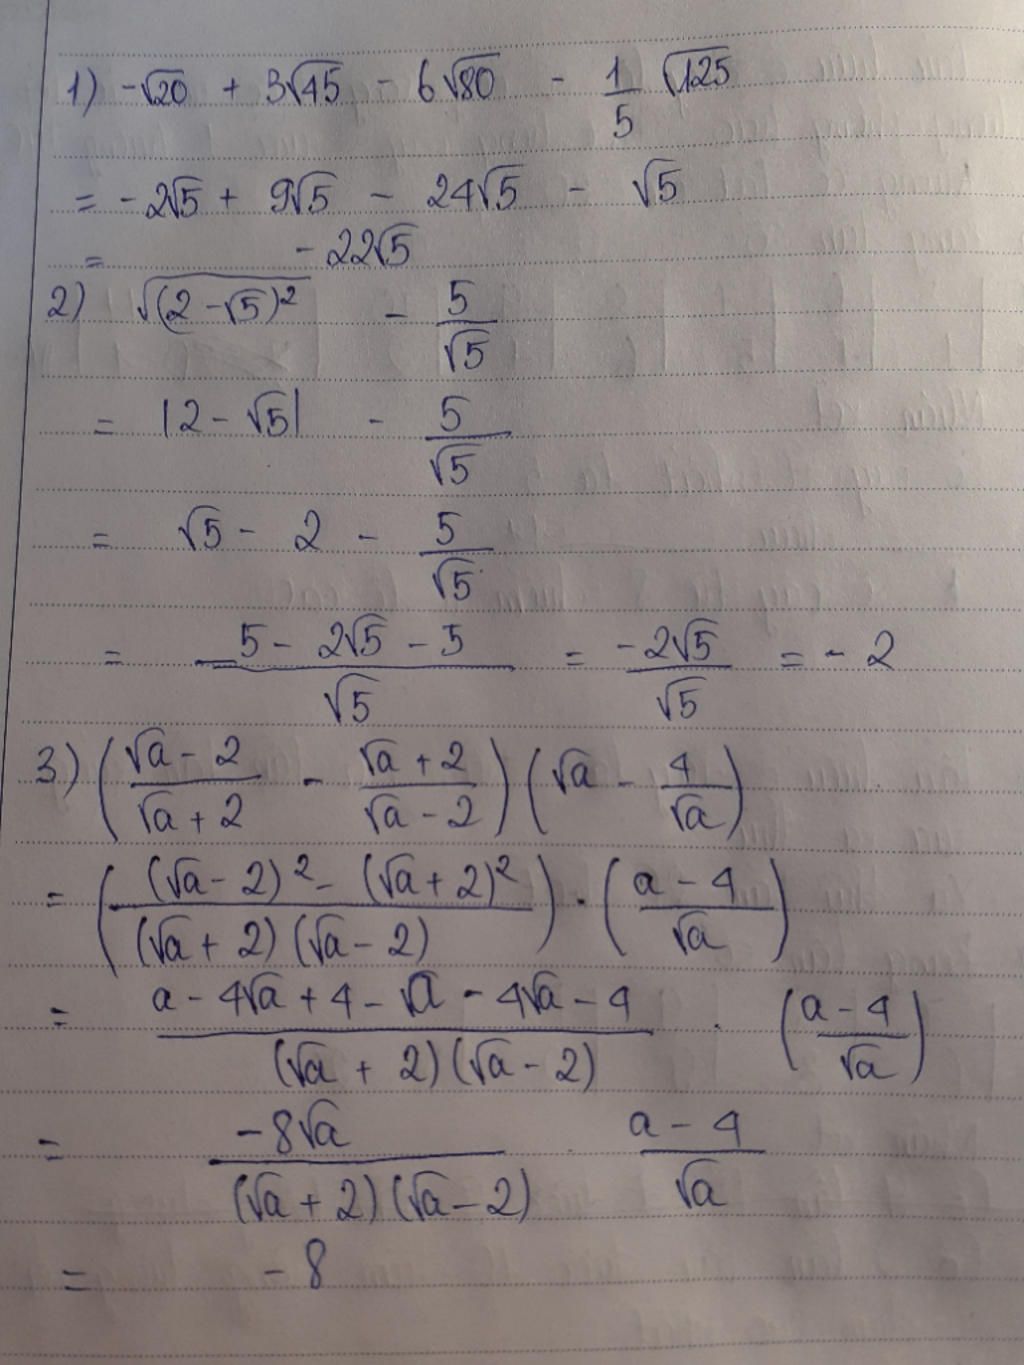 1) -√20 + 3√45 - 6√80 - 1/5 √125
= -2√5 + 9√5 - 24√5 - √5
= -22√5
2) √(2-√5)² - 5/√5
= |2-√5| - 5/√5
= √5 - 2 - 5/√5
= (5 - 2√5 - 5)/√5 = -2√5/√5 = -2
3) ((√a - 2)/(√a + 2) - (√a + 2)/(√a - 2)) (√a - 4/√a)
= (((√a - 2)² - (√a + 2)²)/((√a + 2)(√a - 2))) . ((a - 4)/√a)
= (a - 4√a + 4 - √a - 4√a - 4)/((√a + 2)(√a - 2)) . ((a - 4)/√a)
= -8√a/((√a + 2)(√a - 2)) . (a - 4)/√a
= -8